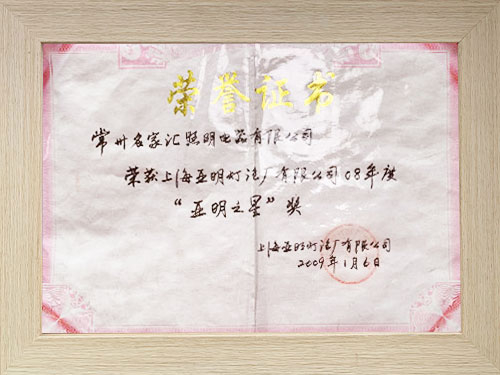 荣誉证书
常州名家汇照明电器有限公司
荣获上海亚明灯泡厂有限公司08年度
“亚明之星”奖
上海亚明灯泡厂有限公司
2009年1月6日